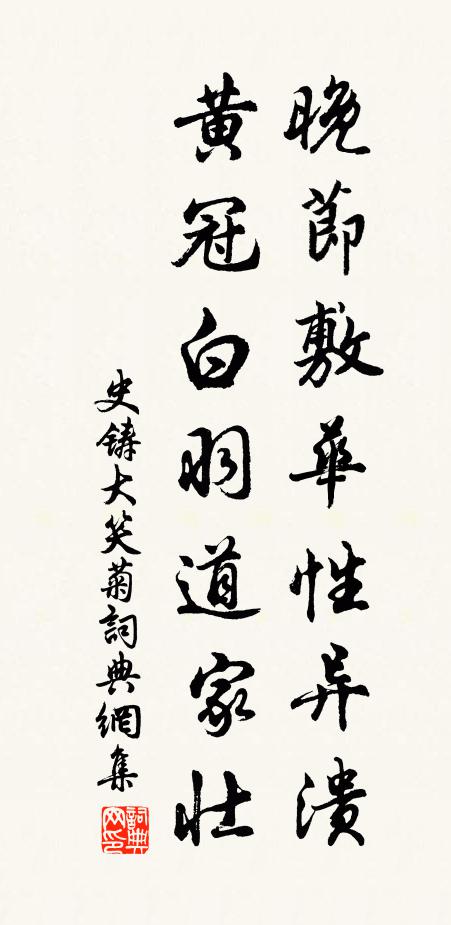 晚節敷華性异潰
黃冠白羽道家壯
史鑄大笑菊詞典網集
詞典網印